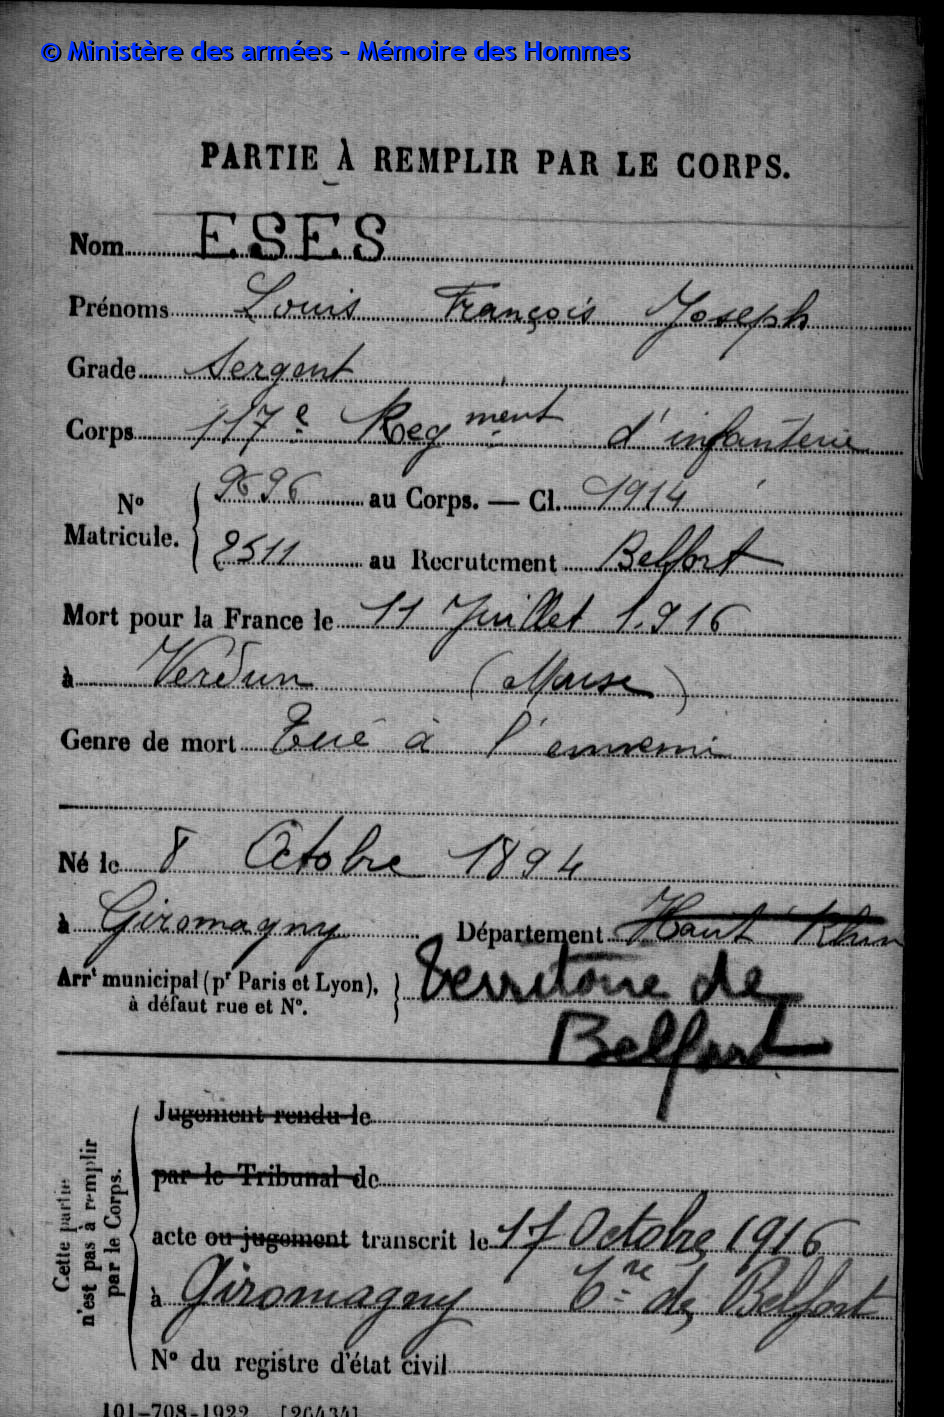 © Ministère des armées - Mémoire des Hommes
PARTIE À REMPLIR PAR LE CORPS.
Nom ESES
Prénoms Louis François Joseph
Grade Sergent
Corps 117e Regment d'infanterie
No Matricule. 9696 au Corps. — Cl. 1914
2511 au Recrutement Belfort
Mort pour la France le 11 Juillet 1916
à Verdun (Meuse)
Genre de mort Tué à l'ennemi
Né le 8 Octobre 1894
à Giromagny Département Haut Rhin
Arrt municipal (pr Paris et Lyon), à défaut rue et No. Territoire de
Belfort
Cette partie n'est pas à remplir par le Corps.
Jugement rendu le
par le Tribunal de
acte ou jugement transcrit le 17 Octobre 1916
à Giromagny Tre de Belfort
No du registre d'état civil
101-708-1922. [26434]